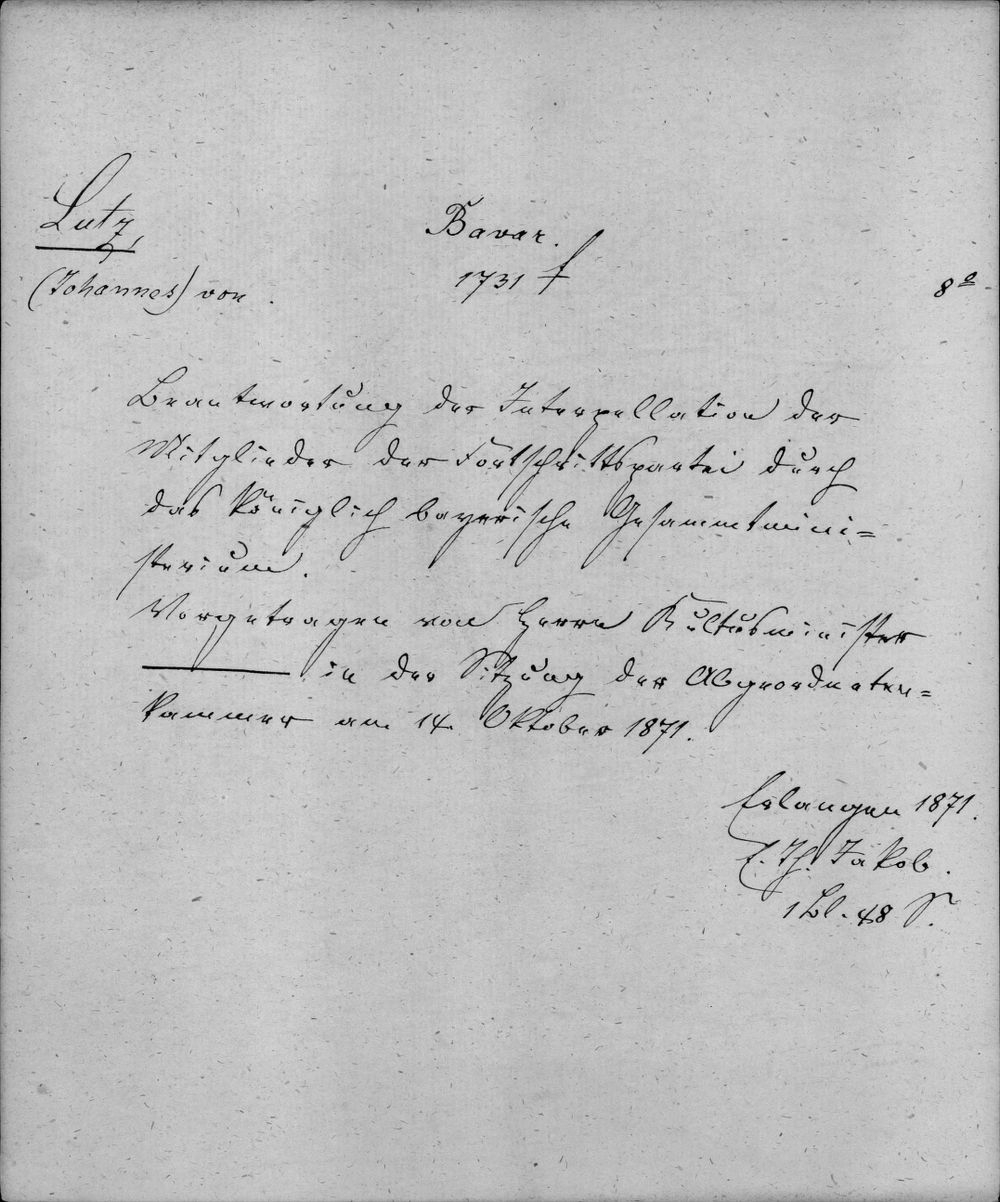 Lutz,
(Johannes) von
Bavar.
1731 f
8º
Beantwortung der Interpellation der
Mitglieder der Fortschrittspartei durch
das königlich bayerische Gesammtmini=
sterium.
Vorgetragen von Herrn Kultusminister
——— in der Sitzung der Abgeordneten=
kammer am 14. Oktober 1871.
Erlangen 1871.
E. Th. Jakob.
1 Bl. 48 S.